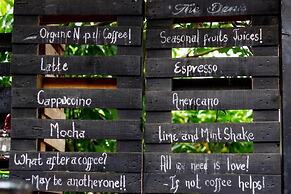 The Dens
Organic Nepali Coffee!
Latte
Cappuccino
Mocha
What after a coffee?
-Maybe another one!!
Seasonal fruits Juices!
Espresso
Americano
Lime and Mint Shake
All we need is love!
-Is not coffee helps!